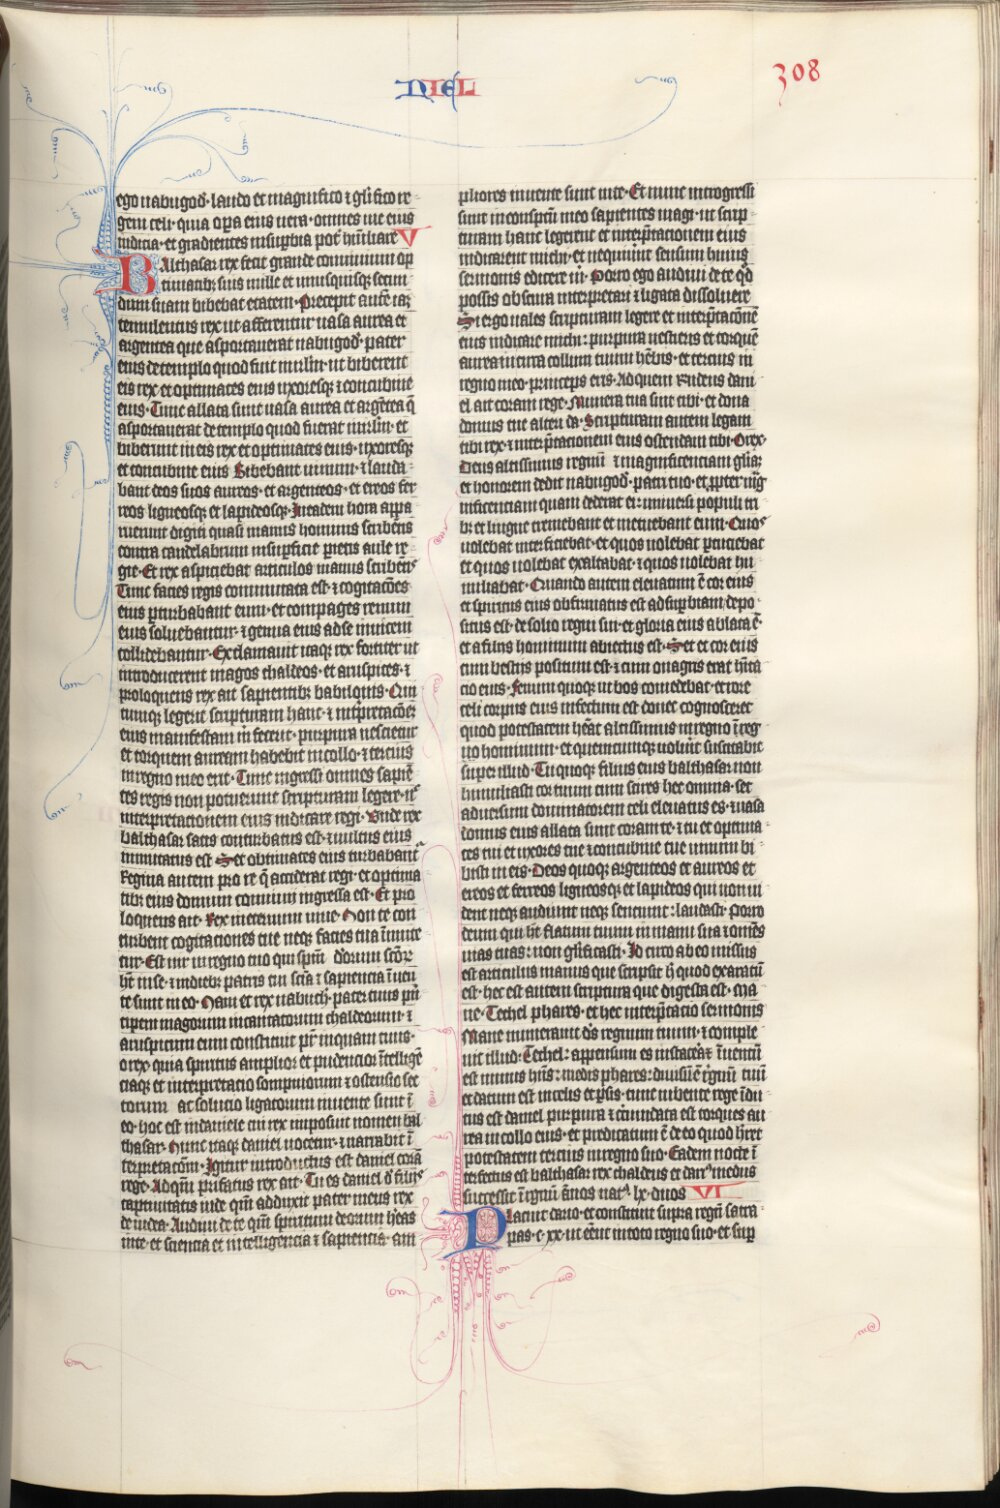 DIEL
308
ego nabugod̄. laudo et magnifico ⁊ gl̄ifico re-
gem celi. quia opa eius uera. omnes uie eius
iudicia. et gradientes in supbia pot̄ hūiliare V
Balthasar rex fecit grande conuiuium op
timatibꝫ suis mille et unusquisqꝫ secun
dum suam bibebat etatem. Precepit autē iaꝫ
temulentus rex ut afferentur uasa aurea et
argentea que asportauerat nabugod̄. pater
eius de templo quod fuit in irl̄m. ut biberent
eis rex et optimates eius uxoresqꝫ ⁊ concubine
eius. Tunc allata sunt uasa aurea et argētea q̄
asportauerat de templo quod fuerat in irl̄m. et
biberunt in eis rex et optimates eius. uxoresqꝫ
et concubine eius Bibebant uinum. ⁊ lauda-
bant deos suos aureos. et argenteos. et ereos fer
reos ligneosqꝫ et lapideosqꝫ. In eadem hora appa
ruerunt digiti quasi manus hominis scribēs
contra candelabrum in supficie pietis aule re-
gie. Et rex aspiciebat articulos manus scribent̄
Tunc facies regis conmutata est. ⁊ cogitac̄oes
eius pturbabant eum. et compages renum
eius soluebantur. ⁊ genua eius ad se inuicem
collidebantur. Exclamauit itaqꝫ rex fortiter ut
introducerent magos chaldeos. et aruspices. ⁊
proloquens rex ait sapientibꝫ babilonis. Qui
cumqꝫ legerit scripturam hanc. ⁊ intp̄retac̄oeꝫ
eius manifestam m̄ fecerit. purpura uestietur
et torquem auream habebit in collo. ⁊ tercius
in regno meo erit. Tunc ingressi omnes sapiē
tes regis non potuerunt scripturam legere. n̄
interpretationem eius indicare regi. Unde rex
balthasar satis conturbatus est. ⁊ uultus eius
inmutatus est Set et obtimates eius turbabant̄
Regina autem pro re q̄ acciderat regi. et optima
tibꝫ eius domum conuiuii ingressa est. Et pro
loquens ait. Rex in eternum uiue. Non te con
turbent cogitaciones tue neqꝫ facies tua īmute
tur. Est uir in regno tuo qui sp̄m deorum sc̄oꝝ
h̄t in se. ⁊ in diebꝫ patris tui sc̄ia ⁊ sapiencia īuen
te sunt in eo. Nam et rex nabuch̄. pater tuus p̄n
cipem magorum incantatorum chaldeorum. ⁊
aruspicum eum constituit p̄r inquam tuus.
o rex. quia spiritus amplior et prudencior ītellige
ciaqꝫ et interpretacio sompniorum ⁊ ostensio sec
torum ac solucio ligatorum inuente sunt ī
eo. hoc est in daniele cui rex imposuit nomen bal
thasar. Nunc itaqꝫ daniel uocetur. ⁊ narrabit ī
terpretac̄om. Igitur introductus est daniel corā
rege. Ad quē p̄fatus rex ait. Tu es daniel d̄ filiis
captiuitatis iude quē adduxit pater meus rex
de iudea. Audiui de te qm̄ spiritum deorum h̄eas
inte. et sciencia et intelligencia ⁊ sapiencia am
pliores inuente sunt inte. Et nunc introgressi
sunt in conspectu meo sapientes magi. ut scrip-
turam hanc legerent et interp̄tacionem eius
indicarent michi. et nequiuerūt sensum huius
sermonis edicere m̄. Porro ego audiui de te qd̄
possis obscura interpretari ⁊ ligata dissoluere
Si ergo uales scripturam legere et interp̄tac̄onē
eius indicare michi: purpura uestieris et torquē
aurea circa collum tuum hēbis. et tercius in
regno meo. princeps eris. Ad quem Rndens dani
el ait coram rege. Munera tua sint tibi. et dona
domus tue alteri da. Scripturam autem legam
tibi rex. ⁊ interp̄tacionem eius ostendam tibi. O rex.
Deus altissimus regnū ⁊ magnificenciam gl̄iaꝫ
et honorem dedit nabugod̄. patri tuo. et ꝓpter mag
nificenciam quam dederat ei: uniuersi populi tri
bꝫ et lingue tremebant et metuebant eum. Quos
uolebat interficiebat. et quos uolebat p̄cuciebat
et quos uolebat exaltabat. ⁊ quos uolebat hu
miliabat. Quando autem eleuatum ē cor eius
et spiritus eius obfirmatus est ad supbiam: depo-
situs est de solio regni sui. et gloria eius ablata ē.
et a filiis hominum abiectus est. Set et cor eius
cum bestiis positum est. ⁊ cum onagris erat hīta
cio eius. Fenum quoqꝫ ut bos comedebat. et rore
celi corpus eius infectum est donec cognosceret
quod potestatem h̄eat altissimus in regno ī reg
no hominum. et quemcunqꝫ uoluit̄ suscitabit
super illud. Tu quoqꝫ filius eius balthasar non
humiliasti cor tuum cum scires hec omnia. set
aduersum dominatorem celi eleuatus es. ⁊ uasa
domus eius allata sunt coram te. ⁊ tu et optima-
tes tui et uxores tue ⁊ concubine tue uinum bi-
bisti in eis. Deos quoqꝫ argenteos et aureos et
ereos et ferreos ligneosqꝫ et lapideos qui non ui
dent neqꝫ audiunt neqꝫ senciunt: laudasti. Porro
deum qui h̄t flatum tuum in manu sua ⁊ omēs
uias tuas: non gl̄ificasti. Id circo ab eo missus
est articulus manus que scripsit h̄ quod exaratū
est. hec est autem scriptura que digesta est. Ma
ne. Techel phares. et hec interp̄tacio sermonis
Mane numerauit d̄s regnum tuum. ⁊ comple
uit illud. Techel: appensum es in statera ⁊ īuentū
est minus h̄ns: medis phares: diuisū ē regnū tuū
et datum est medis et p̄sis. tunc iubente rege īdu
tus est daniel purpura ⁊ c̄undata est torques au
rea in collo eius. et predicatum ē de eo quod h̄ret
potestatem tercius in regno suo. Eadem nocte ī
terfectus est balthasar rex chaldeus et dari9 medus
successit ī regnū annos nat9 lx. duos VI
Placuit dario. et constituit supra regnū satra-
pas. c. xx. ut eēnt in toto regno suo. et sup